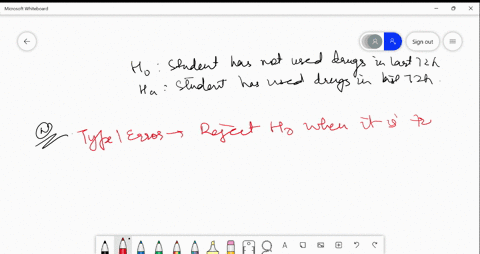 Microsoft Whiteboard
Sign out
H₀ : Student has not used drugs in last 72h
Ha : Student has used drugs in last 72h.
Type 1 Error → Reject H₀ when it is
A